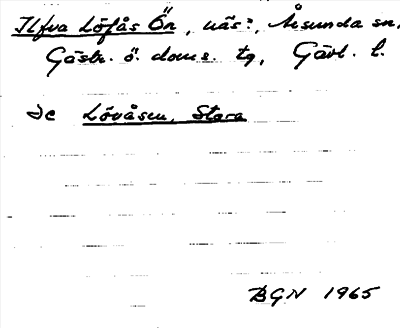 Ilfva Löfås Ön, näs:, Åsunda sn,
Gästr. ö. doms. tg, Gävl. l.
Se Lövåsen, Stora
BGN 1965